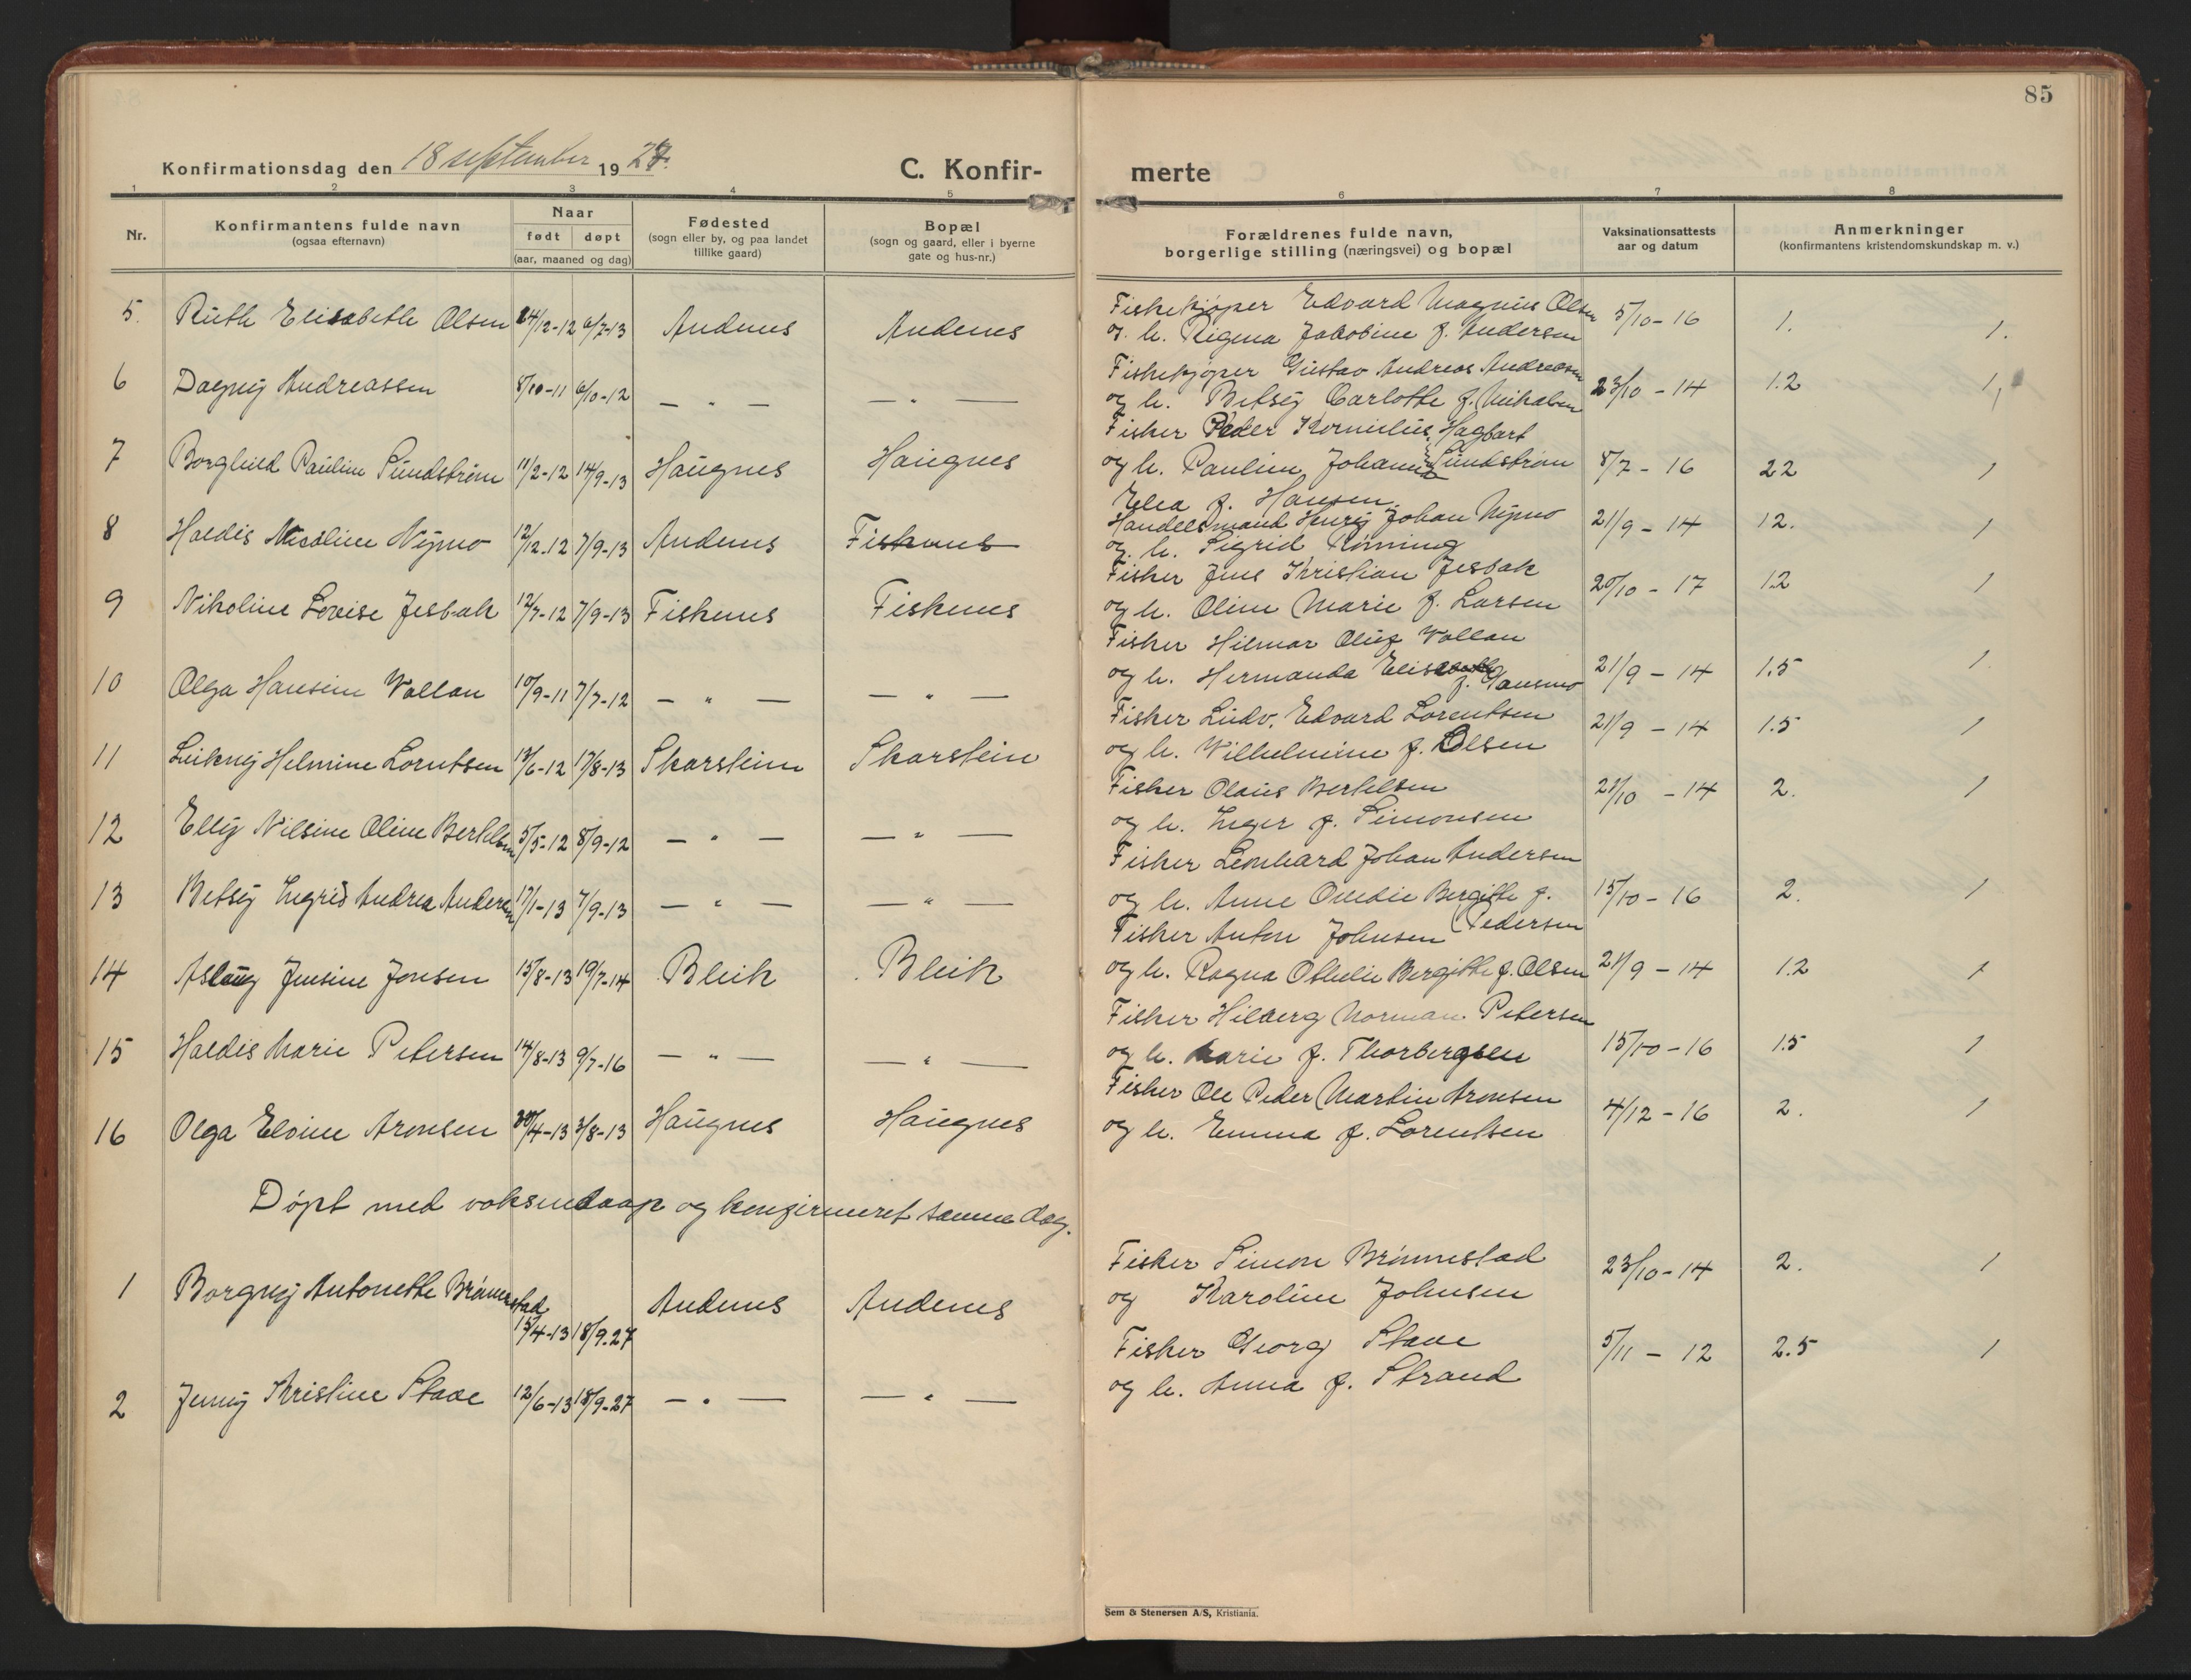 85
Konfirmationsdag den 18 september 1927.
C. Konfir-
merte
1 2 3 4 5 6 7 8
Nr.
Konfirmantens fulde navn
(ogsaa efternavn)
Naar
født døpt
(aar, maaned og dag)
Fødested
(sogn eller by, og paa landet
tillike gaard)
Bopæl
(sogn og gaard, eller i byerne
gate og hus-nr.)
Forældrenes fulde navn,
borgerlige stilling (næringsvei) og bopæl
Vaksinationsattests
aar og datum
Anmerkninger
(konfirmantens kristendomskundskap m. v.)
Fiskekjøper Edvard Magnus Olsen
5. Ruth Elisabeth Olsen 24/12-12 6/7-13 Andenes Andenes og h. Regina Jakobine f. Andersen 5/10-16 1. 1.
Fiskekjøper Gustav Andreas Andreasen
6 Dagny Andreassen 8/10-11 6/10-12 — " — — " — og h. Betsy Carlotte f. Mikalsen 23/10-14 1.2 1,
Fisker Peder Kornelius Hagbart
7 Borghild Pauline Sundstrøm 11/2-12 14/9-13 Haugnes Haugnes og h. Pauline Johanna Sundstrøm 8/7-16 22 1
Elea f. Hansen
Handelsmand Henry Johan Nymo
8 Haldis Nicoline Nymo 12/12-12 7/9-13 Andenes Fiskenes og h. Sigrid Rønning 21/9-14 12. 1
Fisker Jens Kristian Jesbak
9 Nikoline Lovise Jesbak 12/7-12 7/9-13 Fiskenes Fiskenes og h. Oline Marie f. Larsen 20/10-17 12 1
Fisker Hilmar Oluf Vollan
10 Olga Hansine Vollan 10/9-11 7/7-12 — " — — " — og h. Hermanda f. Gausmo 21/9-14 1.5 1
Fisker Ludv. Edvard Lorentsen
11 Leikny Helmine Lorntsen 13/6-12 17/8-13 Skarstein Skarstein og h. Wilhelmine f. Olsen 21/9-14 1.5 1
Fisker Olaus Bertelsen
12 Elly Nilsine Oline Bertelsen 5/5-12 8/9-12 — " — — " — og h. Inger f. Simonsen 21/10-14 2. 1
Fisker Leonhard Johan Andersen
13 Betsy Ingrid Andrea Andersen 17/1-13 7/9-13 — " — — " — og h. Anne Ovedie Bergitte f. Pedersen 15/10-16 2. 1
Fisker Anton Johnsen
14 Aslaug Jensine Jonsen 15/8-13 19/7-14 Bleik Bleik og h. Ragna Othelie Bergitte f. Olsen 21/9-14 1.2 1
Fisker Hilberg Norman Petersen
15 Haldis Marie Petersen 14/8-13 9/7-16 — " — — " — og h. Marie f. Thorbergsen 15/10-16 1.5 1
Fisker Ole Peder Martin Aronsen
16 Olga Elvine Aronsen 30/4-13 3/8-13 Haugnes Haugnes og h. Emma f. Lorentsen 4/12-16 2. 1
Døpt med voksendaap og konfirmeret samme dag.
Fisker Simon Brønnestad
1 Borgny Antonette Brønnestad 15/4-13 18/9.27 Andenes Andenes og Karoline Johnsen 23/10-14 2. 1
Fisker Georg Stave
2 Jenny Kristine Stave 12/6-13 18/9-27 — " — — " — og h. Anna f. Strand 5/11-12 2.5 1
Sem & Stenersen A/S, Kristiania.